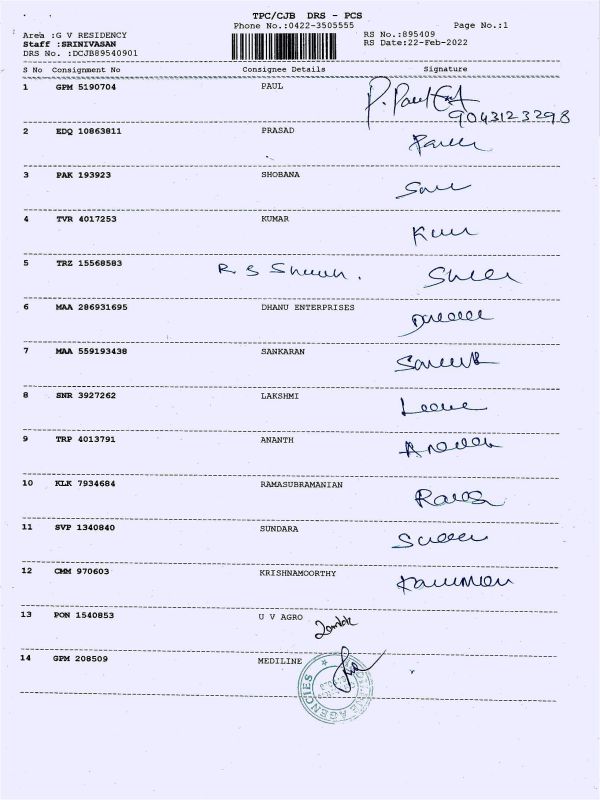 TPC/CJB DRS - PCS
Phone No.:0422-3505555 Page No.:1
Area :G V RESIDENCY RS No.:895409
Staff :SRINIVASAN RS Date:22-Feb-2022
DRS No. :DCJB89540901
S No Consignment No Consignee Details Signature
1 GPM 5190704 PAUL P. Paul
9043123298
2 EDQ 10863811 PRASAD
3 PAK 193923 SHOBANA
4 TVR 4017253 KUMAR
5 TRZ 15568583 R S
6 MAA 286931695 DHANU ENTERPRISES
7 MAA 559193438 SANKARAN
8 SNR 3927262 LAKSHMI
9 TRP 4013791 ANANTH
10 KLK 7934684 RAMASUBRAMANIAN
11 SVP 1340840 SUNDARA
12 CMM 970603 KRISHNAMOORTHY
13 PON 1540853 U V AGRO
14 GPM 208509 MEDILINE
AGENCIES